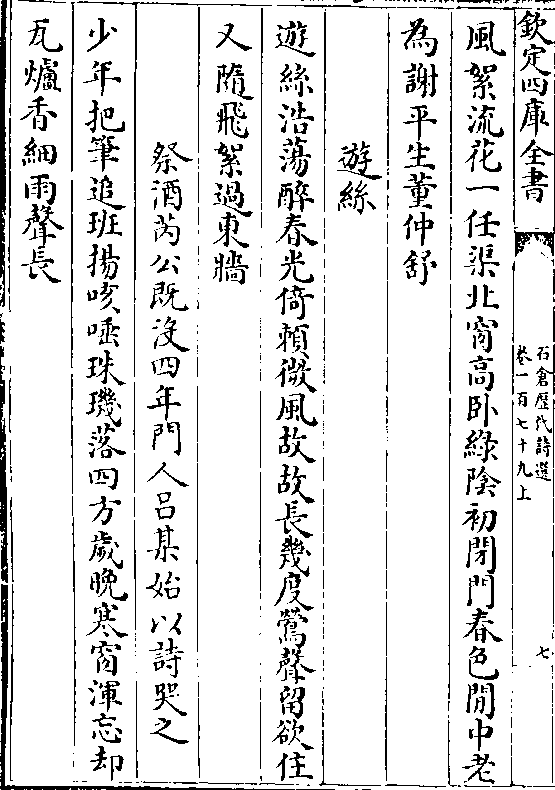 欽定四庫全書
石倉歴代詩選
卷一百七十九上
七
風絮流花一任渠北窗高卧綠陰初閉門春色閒中老
為謝平生董仲舒
遊絲
遊絲浩蕩醉春光倚頼微風故故長幾度鶯聲留欲住
又隨飛絮過東牆
祭酒芮公既沒四年門人呂某始以詩哭之
少年把筆追班揚咳唾珠璣落四方歲晚寒窗渾忘却
瓦爐香細雨聲長